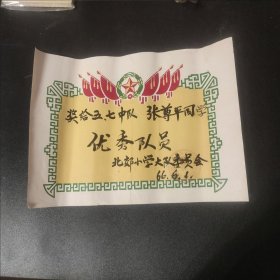 奖给五七中队 张尊平同学
优秀队员
北郊小学大队委员会
66.6.1.